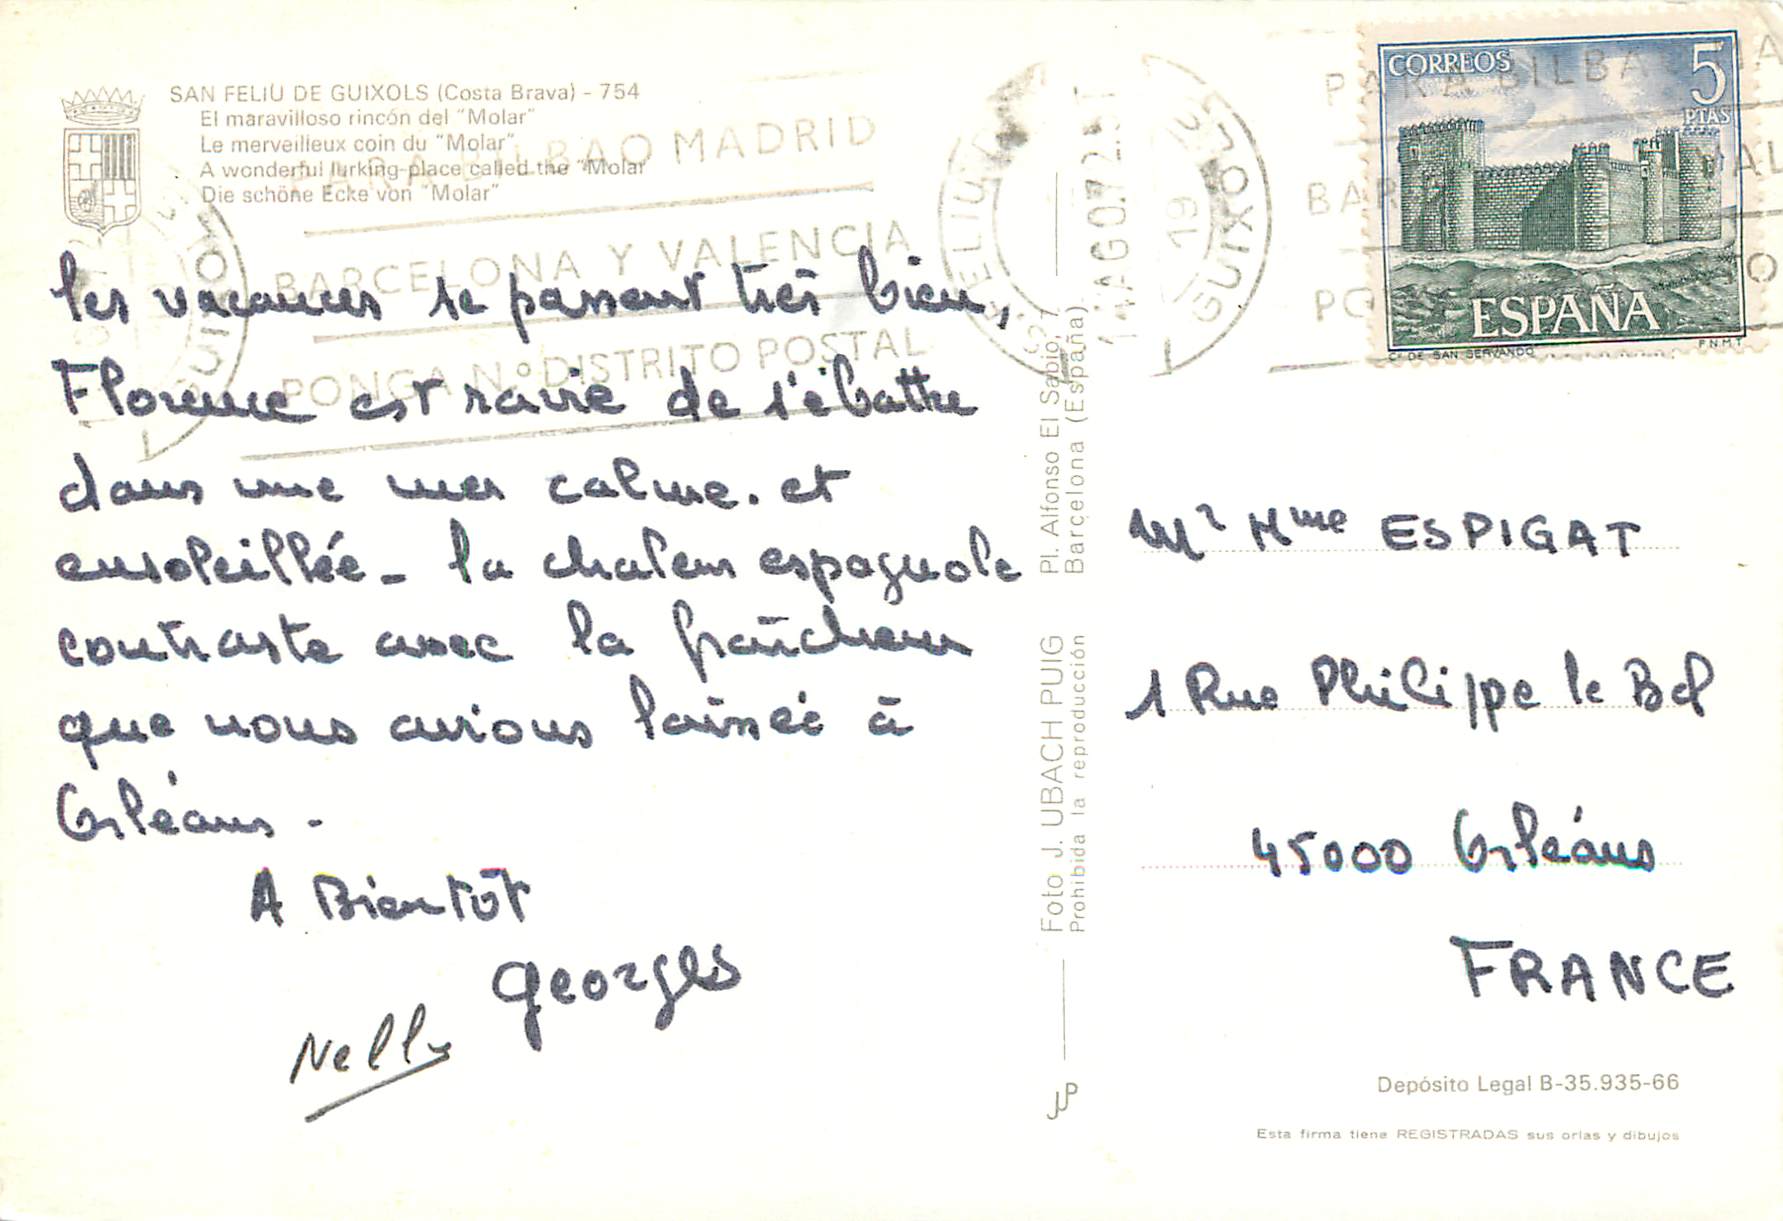 SAN FELIU DE GUIXOLS (Costa Brava) - 754
El maravilloso rincón del "Molar"
Le merveilleux coin du "Molar"
A wonderful lurking-place called the "Molar
Die schöne Ecke von "Molar"
PARA BILBAO MADRID
BARCELONA Y VALENCIA
PONGA N.º DISTRITO POSTAL
les vacances se passent très bien,
Florence est ravie de s'ébattre
dans une mer calme. et
ensoleillée - la chaleur espagnole
contraste avec la fraîcheur
que nous avions laissée à
Orléans -
A Bientôt
Georges
Nelly
Foto J. UBACH PUIG Pl. Alfonso El Sabio,
Prohibida la reproducción Barcelona (España)
FELIU
GUIXOLS
14AGO72
19
CORREOS
5
PTAS
ESPAÑA
Cº DE SAN SERVANDO
F.N.M.T
Mr Mme ESPIGAT
1 Rue Philippe le Bel
45000 Orléans
FRANCE
JUP
Depósito Legal B-35.935-66
Esta firma tiene REGISTRADAS sus orlas y dibujos